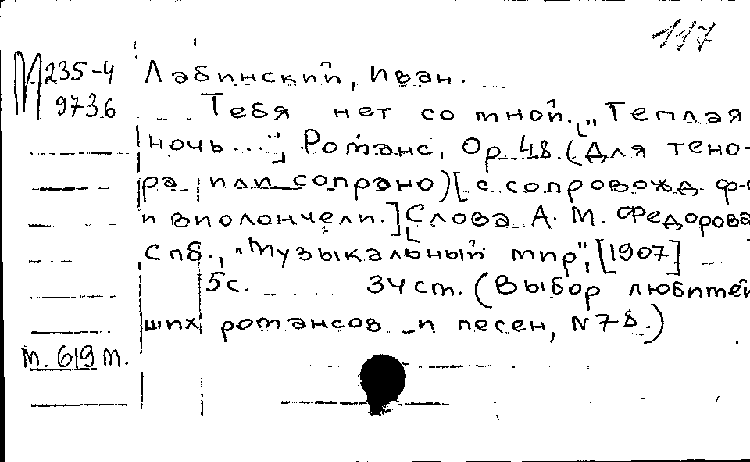 117
М 235-4 Лабинский, Иван.
9736 Тебя нет со мной. „Теплая
ночь...", Романс, Ор. 48. (Для тено-
ра или сопрано) [с сопровожд. ф-
и виолончели.] Слова А. М. Федорова
Спб., „Музыкальный мир", [1907]
5с. 34 см. (Выбор любител
ших романсов и песен, N 78.)
м. 619 м.